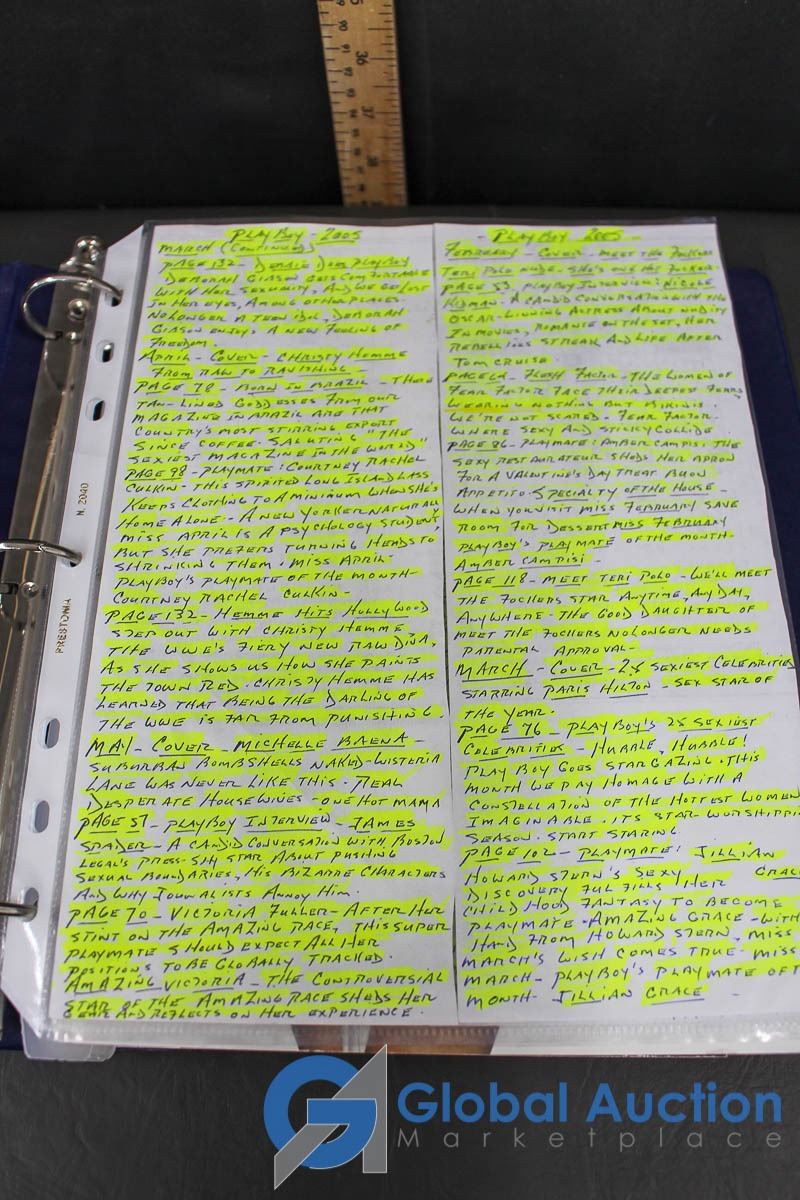 36
37
38
PLAYBOY - 2005
MARCH (CONTINUED)
PAGE 132 - DEBBIE DOES PLAYBOY
DEBORAH GIBSON GETS COMFORTABLE
WITH HER SEXUALITY, AND WE GET LOST
IN HER EYES, AMONG OTHER PLACES.
NO LONGER A TEEN IDOL, DEBORAH
GIBSON ENJOYS A NEW FEELING OF
FREEDOM.
APRIL - COVER - CHRISTY HEMME
FROM RAW TO RAVISHING -
PAGE 78 - BORN IN BRAZIL - THESE
TAN-LINED GODDESSES FROM OUR
MAGAZINE IN BRAZIL ARE THAT
COUNTRY'S MOST STIRRING EXPORT
SINCE COFFEE. SALUTING "THE
SEXIEST MAGAZINE IN THE WORLD"
PAGE 98 - PLAYMATE: COURTNEY RACHEL
CULKIN - THIS SPIRITED LONG ISLAND LASS
KEEPS CLOTHING TO A MINIMUM WHEN SHE'S
HOME ALONE - A NEW YORKER NATURALLY
MISS APRIL IS A PSYCHOLOGY STUDENT,
BUT SHE PREFERS TURNING HEADS TO
SHRINKING THEM. MISS APRIL -
PLAYBOY'S PLAYMATE OF THE MONTH -
COURTNEY RACHEL CULKIN -
PAGE 132 - HEMME HITS HOLLYWOOD
STEP OUT WITH CHRISTY HEMME
THE WWE'S FIERY NEW RAW DIVA,
AS SHE SHOWS US HOW SHE PAINTS
THE TOWN RED. CHRISTY HEMME HAS
LEARNED THAT BEING THE DARLING OF
THE WWE IS FAR FROM PUNISHING.
MAY - COVER - MICHELLE BAENA -
SUBURBAN BOMBSHELLS NAKED - WISTERIA
LANE WAS NEVER LIKE THIS. REAL
DESPERATE HOUSEWIVES - ONE HOT MAMA
PAGE 57 - PLAYBOY INTERVIEW - JAMES
SPADER - A CANDID CONVERSATION WITH BOSTON
LEGAL'S PRESS-SHY STAR ABOUT PUSHING
SEXUAL BOUNDARIES, HIS BIZARRE CHARACTERS
AND WHY JOURNALISTS ANNOY HIM.
PAGE 70 - VICTORIA FULLER - AFTER HER
STINT ON THE AMAZING RACE, THIS SUPER
PLAYMATE SHOULD EXPECT ALL HER
POSITIONS TO BE GLOBALLY TRACKED.
AMAZING VICTORIA - THE CONTROVERSIAL
STAR OF THE AMAZING RACE SHEDS HER
AND REFLECTS ON HER EXPERIENCE.
- PLAYBOY 2005 -
FEBRUARY - COVER - MEET THE FOCKERS
TERI POLO NUDE. SHE'S ONE HOT FOCKER -
PAGE 53 PLAYBOY INTERVIEW: NICOLE
KIDMAN. A CANDID CONVERSATION WITH THE
OSCAR-WINNING ACTRESS ABOUT NUDITY
IN MOVIES, ROMANCE ON THE SET, HER
REBELLIOUS STREAK AND LIFE AFTER
TOM CRUISE.
PAGE 64 - FLESH FACTOR - THE WOMEN OF
FEAR FACTOR FACE THEIR DEEPEST FEARS
WEARING NOTHING BUT BIKINIS.
WE'RE NOT SCARED - FEAR FACTOR -
WHERE SEXY AND STICKY COLLIDE
PAGE 86 - PLAYMATE: AMBER CAMPISI THE
SEXY RESTAURATEUR SHEDS HER APRON
FOR A VALENTINE'S DAY TREAT BUON
APPETITO. SPECIALTY OF THE HOUSE -
WHEN YOU VISIT MISS FEBRUARY SAVE
ROOM FOR DESSERT MISS FEBRUARY
PLAYBOY'S PLAYMATE OF THE MONTH -
AMBER CAMPISI -
PAGE 118 - MEET TERI POLO - WE'LL MEET
THE FOCKERS STAR ANYTIME, ANYDAY,
ANYWHERE. THE GOOD DAUGHTER OF
MEET THE FOCKERS NO LONGER NEEDS
PARENTAL APPROVAL -
MARCH - COVER - 25 SEXIEST CELEBRITIES
STARRING PARIS HILTON - SEX STAR OF
THE YEAR.
PAGE 76 - PLAYBOY'S 25 SEXIEST
CELEBRITIES - HUBBLE, HUBBLE!
PLAYBOY GOES STARGAZING. THIS
MONTH WE PAY HOMAGE WITH A
CONSTELLATION OF THE HOTTEST WOMEN
IMAGINABLE. ITS STAR WORSHIPPING
SEASON. START STARING
PAGE 102 - PLAYMATE: JILLIAN GRACE
HOWARD STERN'S SEXY
DISCOVERY FULFILLS HER
CHILDHOOD FANTASY TO BECOME
PLAYMATE. AMAZING GRACE - WITH
HAND FROM HOWARD STERN, MISS
MARCH'S WISH COMES TRUE - MISS
MARCH - PLAYBOY'S PLAYMATE OF T
MONTH - JILLIAN GRACE -
N. 2040
PRESTOMA
GA Global Auction
Marketplace